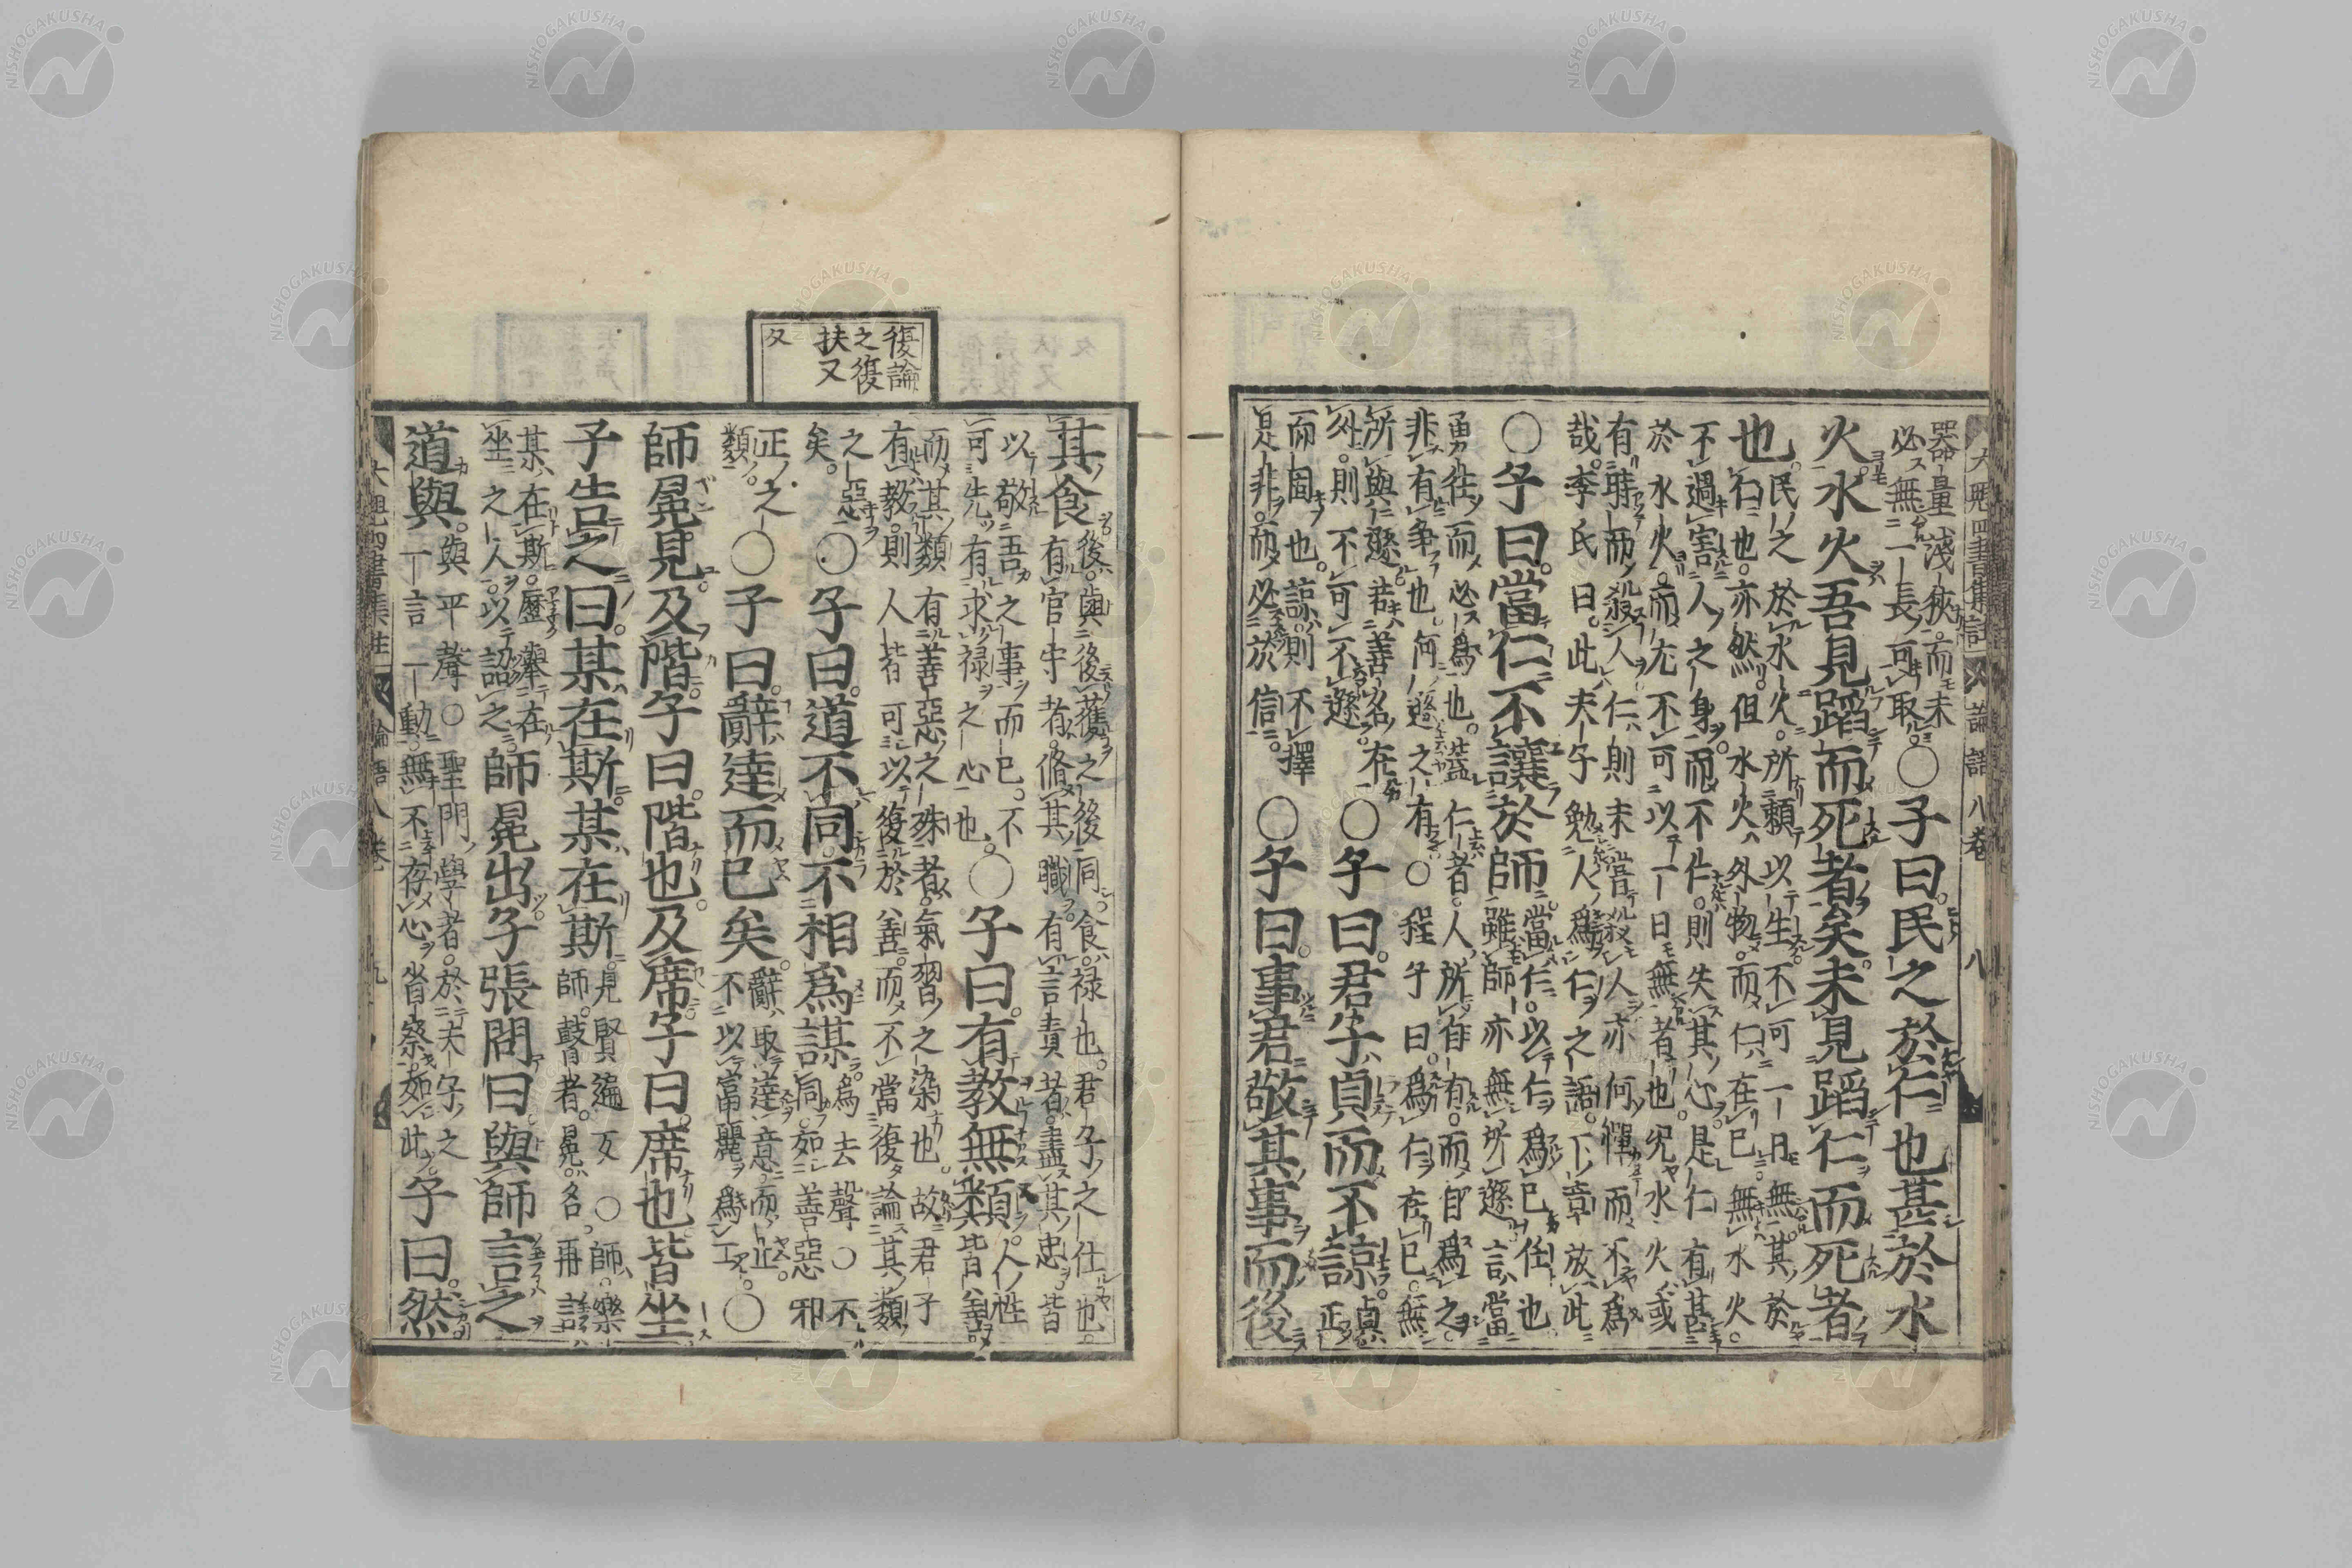 大魁四書集註 論語八卷 八
器量淺狹。而未
必無一長可取。
○子曰。民之於仁也甚於水
火水火吾見蹈而死者矣未見蹈仁而死者
也
民之於水火。所賴以生不可一日無。其於
仁也。亦然。但水火外物。而仁在己無水火。
不過害人之身。而不仁。則失其心。是仁有甚
於水火。而尤不可以一日無者也。況水火或
有時而殺人仁則未嘗殺人亦何憚而不爲
哉。李氏曰。此夫子勉人爲仁之語。下章放此
○子曰。當仁不讓於師
當仁。以仁爲己任也
雖師亦無所遜言當
勇往而必爲也。蓋仁者。人所自有。而自爲之。
非有爭也。何遜之有。○程子曰。爲仁在己。無
所與遜若善名在
外。則不可不遜
○子曰。君子貞而不諒。
貞
正
而固也。諒則不擇
是非。而必於信。
○子曰。事君敬其事而後
復論
之復
扶又
攵
其食
後。與後獲之後同。食。祿也。君子之仕也。
有官守者。脩其職。有言責者。盡其忠。皆
以敬吾之事而已。不
可先有求祿之心也。
○子曰。有教無類
人性
皆善。
而其類有善惡之殊者。氣習之染也。故君子
有教。則人皆可以復於善。而不當復論其類
之惡
矣。
○子曰。道不同不相爲謀
爲去聲○不
同。如善惡邪
正之
類
○子曰。辭達而已矣。
辭取達意而止。
不以富麗爲工。
○
師冕見。及階子曰。階也。及席子曰。席也皆坐
子告之曰。某在斯某在斯。
見賢遍反○師樂
師。瞽者。冕名。再言
某在斯。歷舉在
坐之人。以詔之。
師冕出子張問曰與師言之
道與。
與平聲○聖門學者。於夫子之
一言一動。無不存心省察如此
子曰。然
大魁四書集註 論語八卷 九